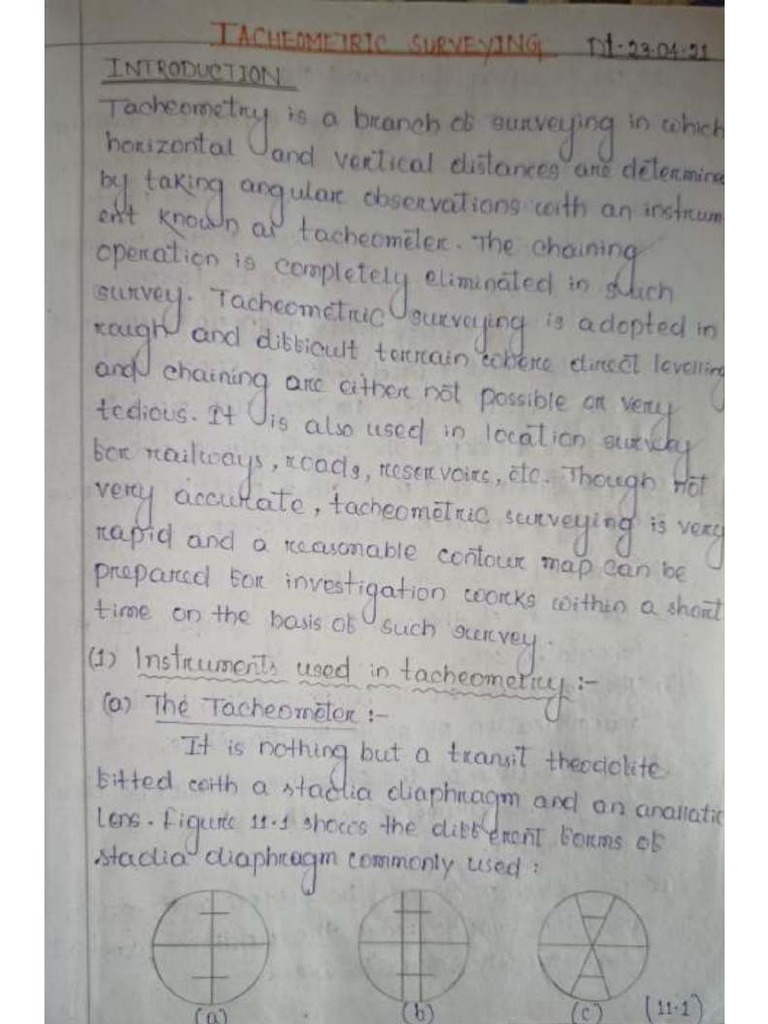 TACHEOMETRIC SURVEYING Dt-23.04.21
INTRODUCTION
Tacheometry is a branch of surveying in which
horizontal and vertical distances are determine
by taking angular observations with an instrum
ent known as tacheometer. The chaining
operation is completely eliminated in such
survey. Tacheometric surveying is adopted in
rough and difficult terrain where direct levelling
and chaining are either not possible or very
tedious. It is also used in location survey
for railways, roads, reservoirs, etc. Though not
very accurate, tacheometric surveying is very
rapid and a reasonable contour map can be
prepared for investigation works within a short
time on the basis of such survey.
(1) Instruments used in tacheometry :-
(a) The Tacheometer :-
It is nothing but a transit theodolite
fitted with a stadia diaphragm and an anallatic
lens. Figure 11.1 shows the different forms of
stadia diaphragm commonly used :
(a) (b) (c) (11.1)